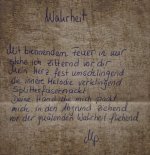 Wahrheit
Mit brennendem Feuer in mir
stehe ich zitternd vor dir
Mein Herz fest umschlingend
die innere Melodie verklingend
Splitterfasernackt
Deine Hand die mich packt
mich in den Abgrund ziehend
vor der quälenden Wahrheit fliehend